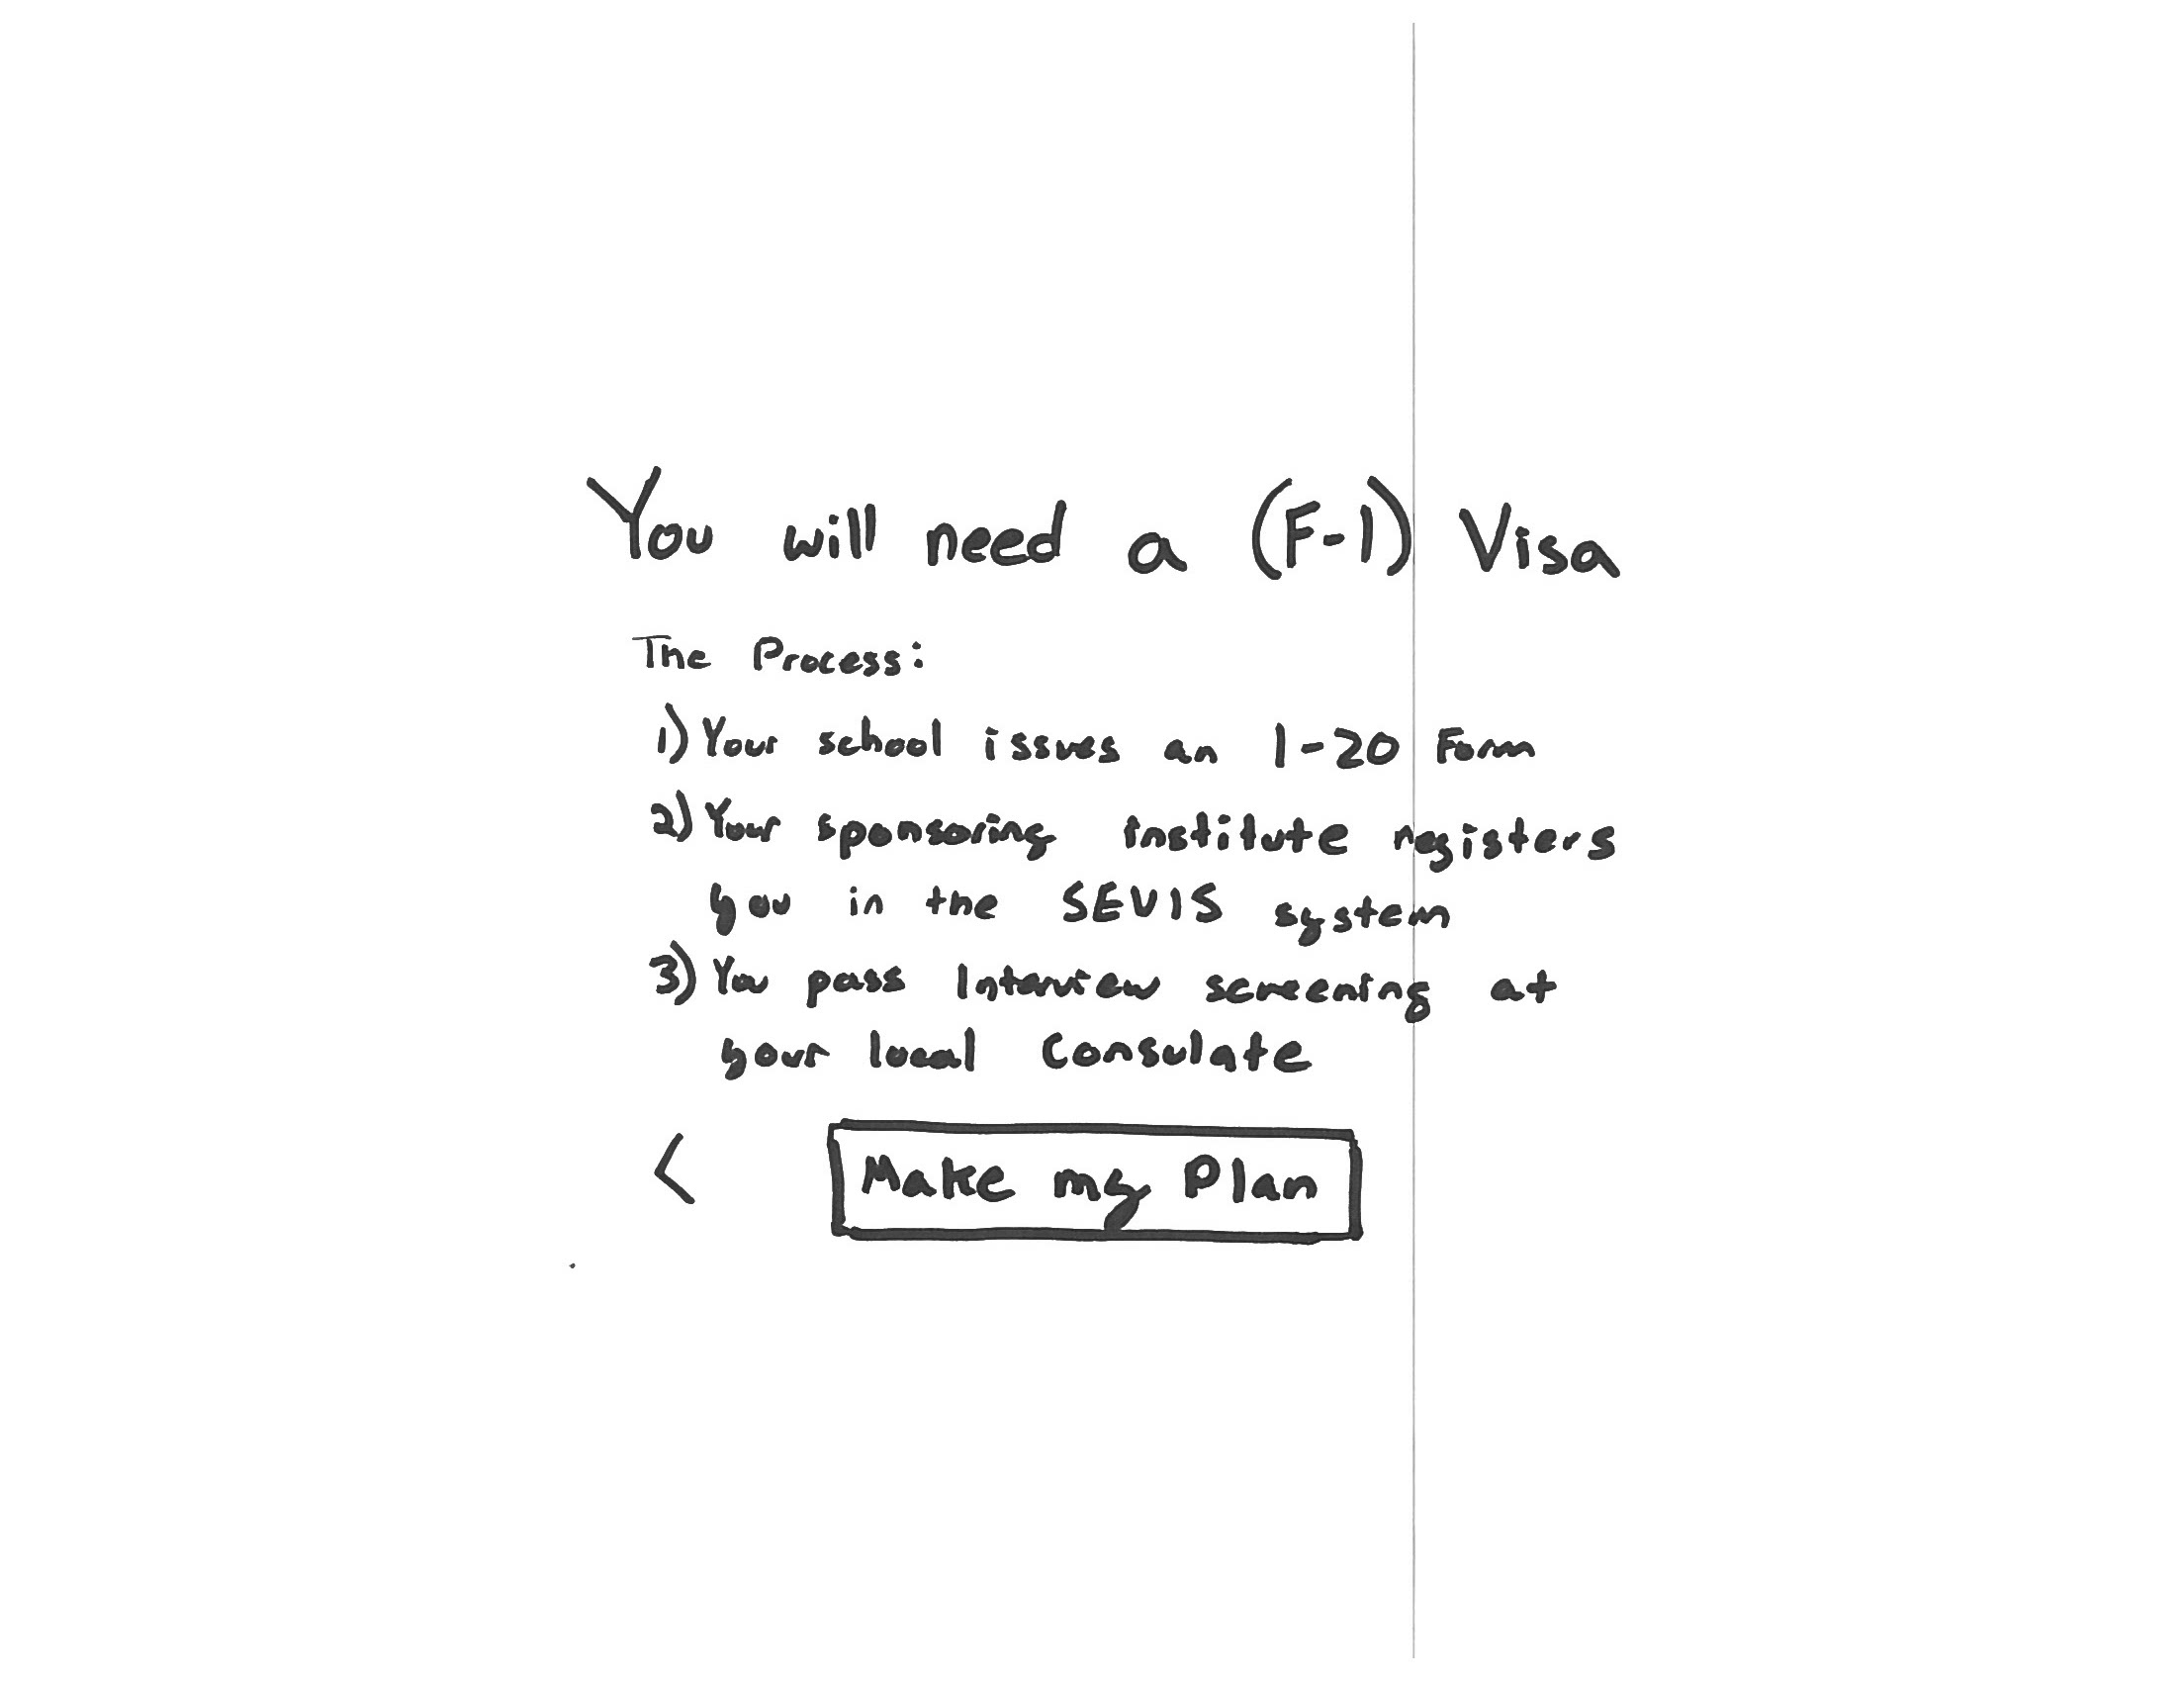 You will need a (F-1) Visa
The Process:
1) Your school issues an I-20 Form
2) Your sponsoring institute registers
you in the SEVIS system
3) You pass Interview screening at
your local Consulate
<
Make my Plan